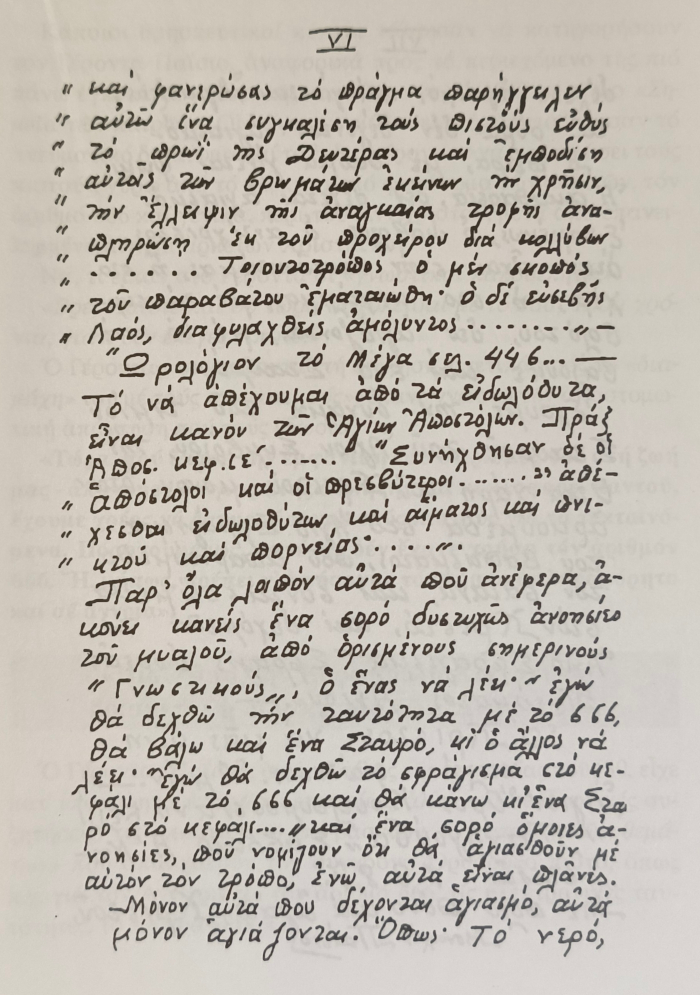 VI
" καί φανερώσας τό πράγμα παρήγγειλεν
" αὐτῶ ἵνα συγκαλέση τούς πιστούς εὐθύς
" τό πρωΐ τῆς Δευτέρας καί ἐμποδίση
" αὐτοῖς τῶν βρωμάτων ἐκείνων τήν χρῆσιν,
" τήν ἔλλειψιν τῆς ἀναγκαίας τροφῆς ἀνα-
" πληρώση ἐκ τοῦ προχείρου διά κολλύβων
" ....... Τοιουτοτρόπος ὁ μέν σκοπός
" τοῦ παραβάτου ἐματαιώθη· ὁ δέ εὐσεβής
" Λαός, διαφυλαχθείς ἀμόλυντος ........„ —
"Ὡρολόγιον τό Μέγα σελ. 446... —
Τό νά ἀπέχουμαι ἀπό τά εἰδωλόθυτα,
εἶναι κανόν τῶν Ἁγίων Ἀποστόλων. Πράξ
Ἀποσ. κεφ. ιε΄ ....... "Συνήχθησαν δέ οἱ
" ἀπόστολοι καί οἱ πρεσβύτεροι ....... " ἀπέ-
" χεσθαι εἰδωλοθύτων καί αἵματος καί πνι-
" κτοῦ καί πορνείας· ....„.
Παρ' ὅλα λοιπόν αὐτά πού ἀνέφερα, ἀ-
κούει κανείς ἕνα σορό δυστυχῶς ἀνοησίες
τοῦ μυαλοῦ, ἀπό ὁρισμένους σημερινούς
" Γνωστικούς„, ὁ ἕνας νά λέει· " ἐγώ
θά δεχθῶ τήν ταυτότητα μέ τό 666,
θά βάλω καί ἕνα Σταυρό, κι ὁ ἄλλος νά
λέει· "ἐγώ θά δεχθῶ τό σφράγισμα στό κε-
φάλι μέ τό 666 καί θά κάνω κι ἕνα Σταυ
ρό στό κεφάλι....„ καί ἕνα σορό ὅμοιες ἀ-
νοησίες, πού νομίζουν ὅτι θά ἁγιασθοῦν μέ
αὐτόν τόν τρόπο, ἐνῶ αὐτά εἶναι πλάνες.
—Μόνον αὐτά που δέχονται ἁγιασμό, αὐτά
μόνον ἁγιάζονται. Ὅπως· Τό νερό,